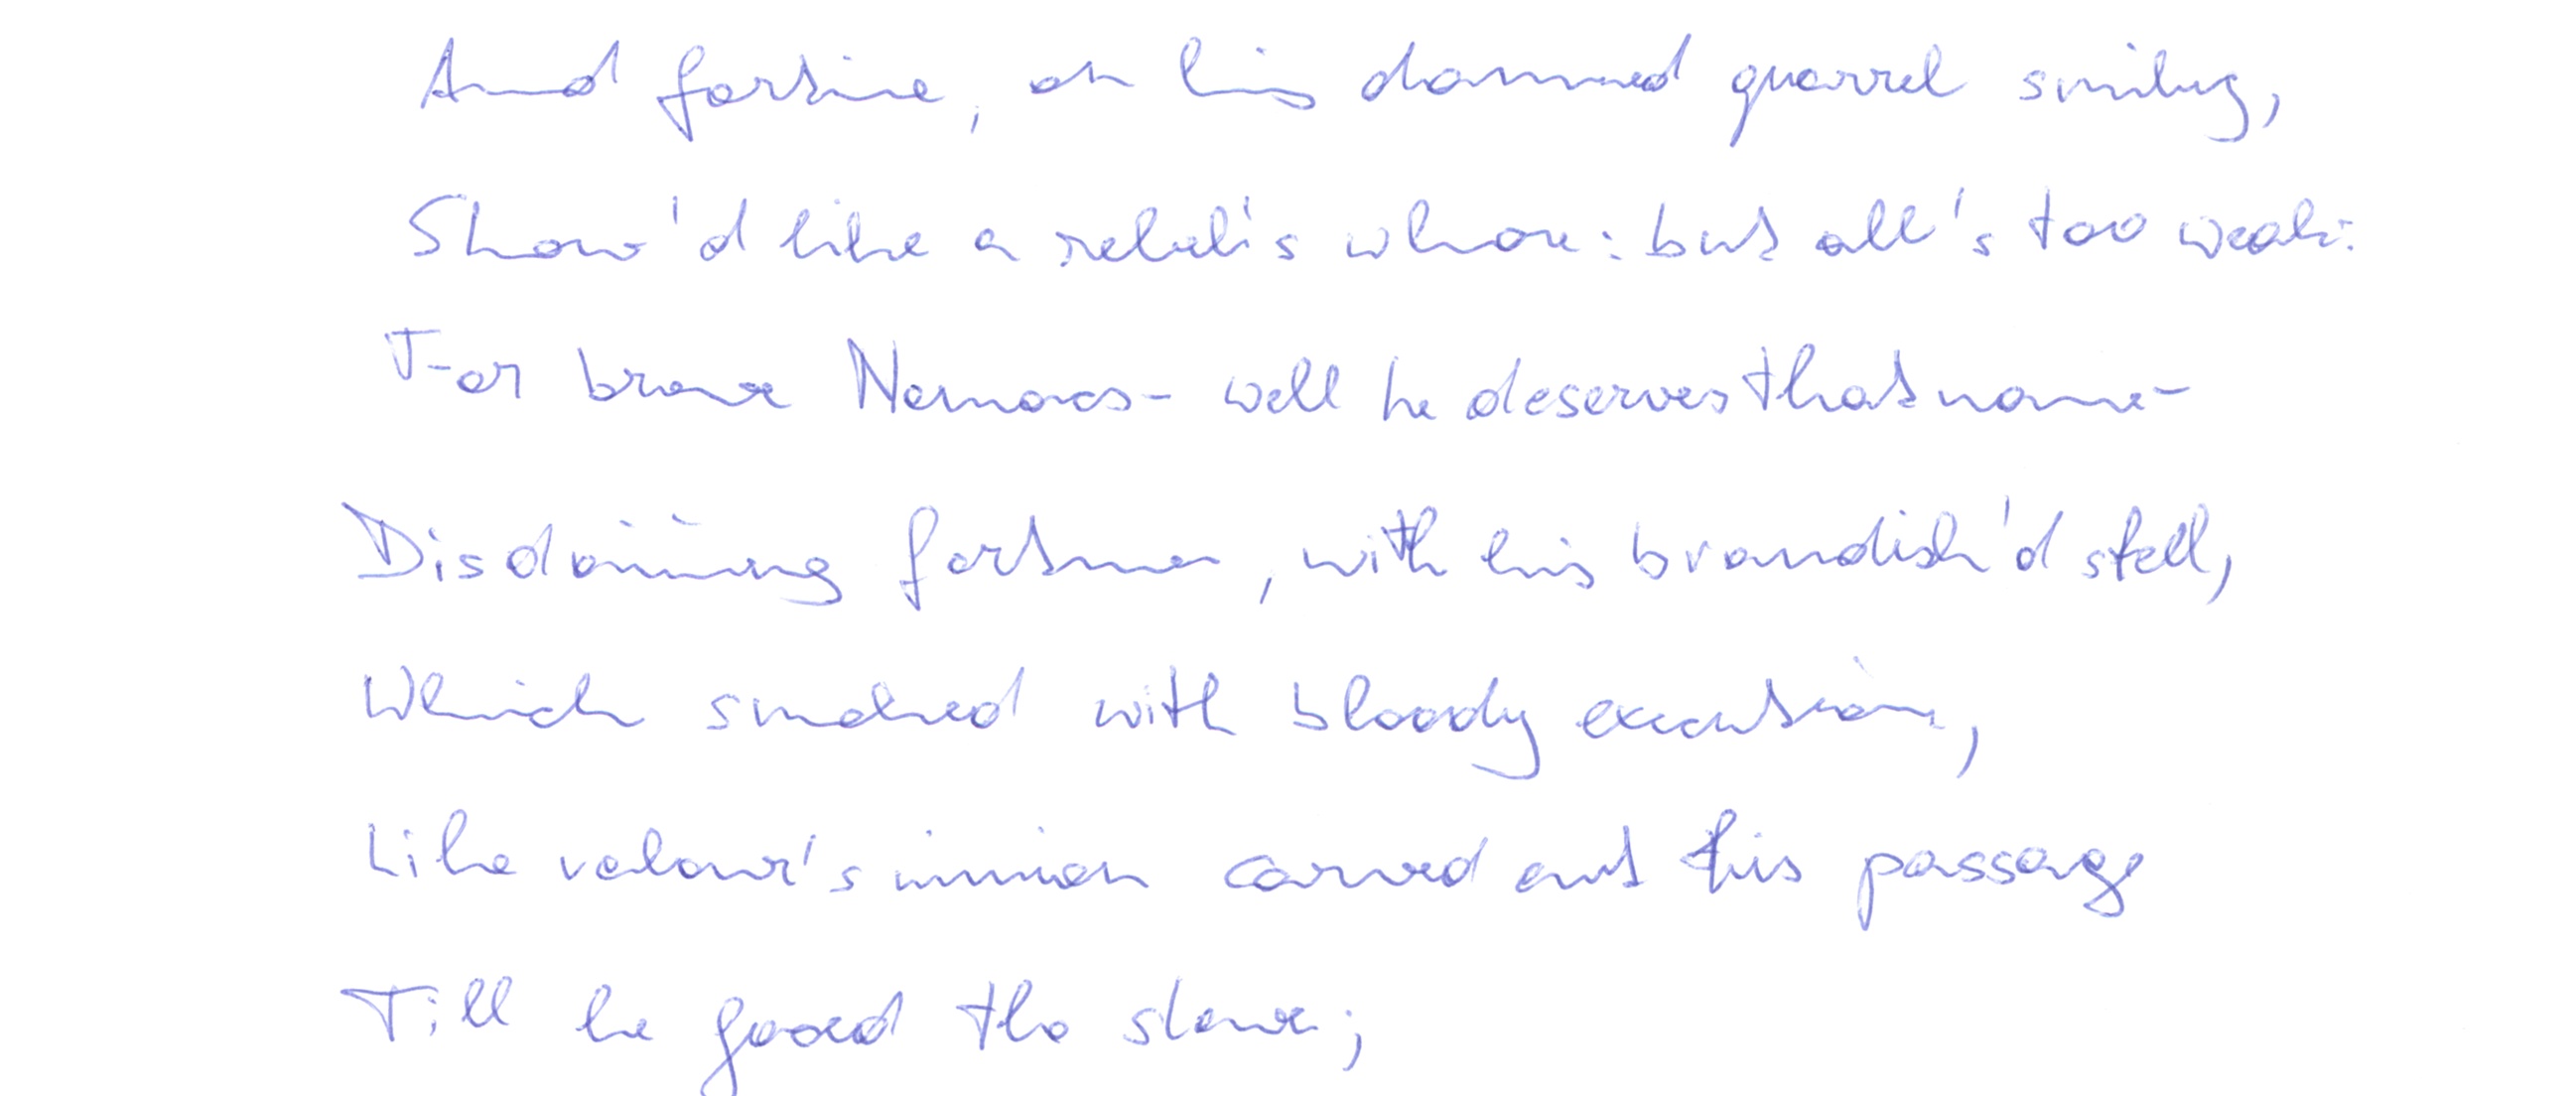 And fortune, on his damned quarrel smiling,
Show'd like a rebel's whore: but all's too weak:
For brave Nemacs- well he deserves that name-
Disdaining fortune, with his brandish'd stell,
Which smoked with bloody execution,
Like valour's minion carved out his passage
Till he faced the slave;